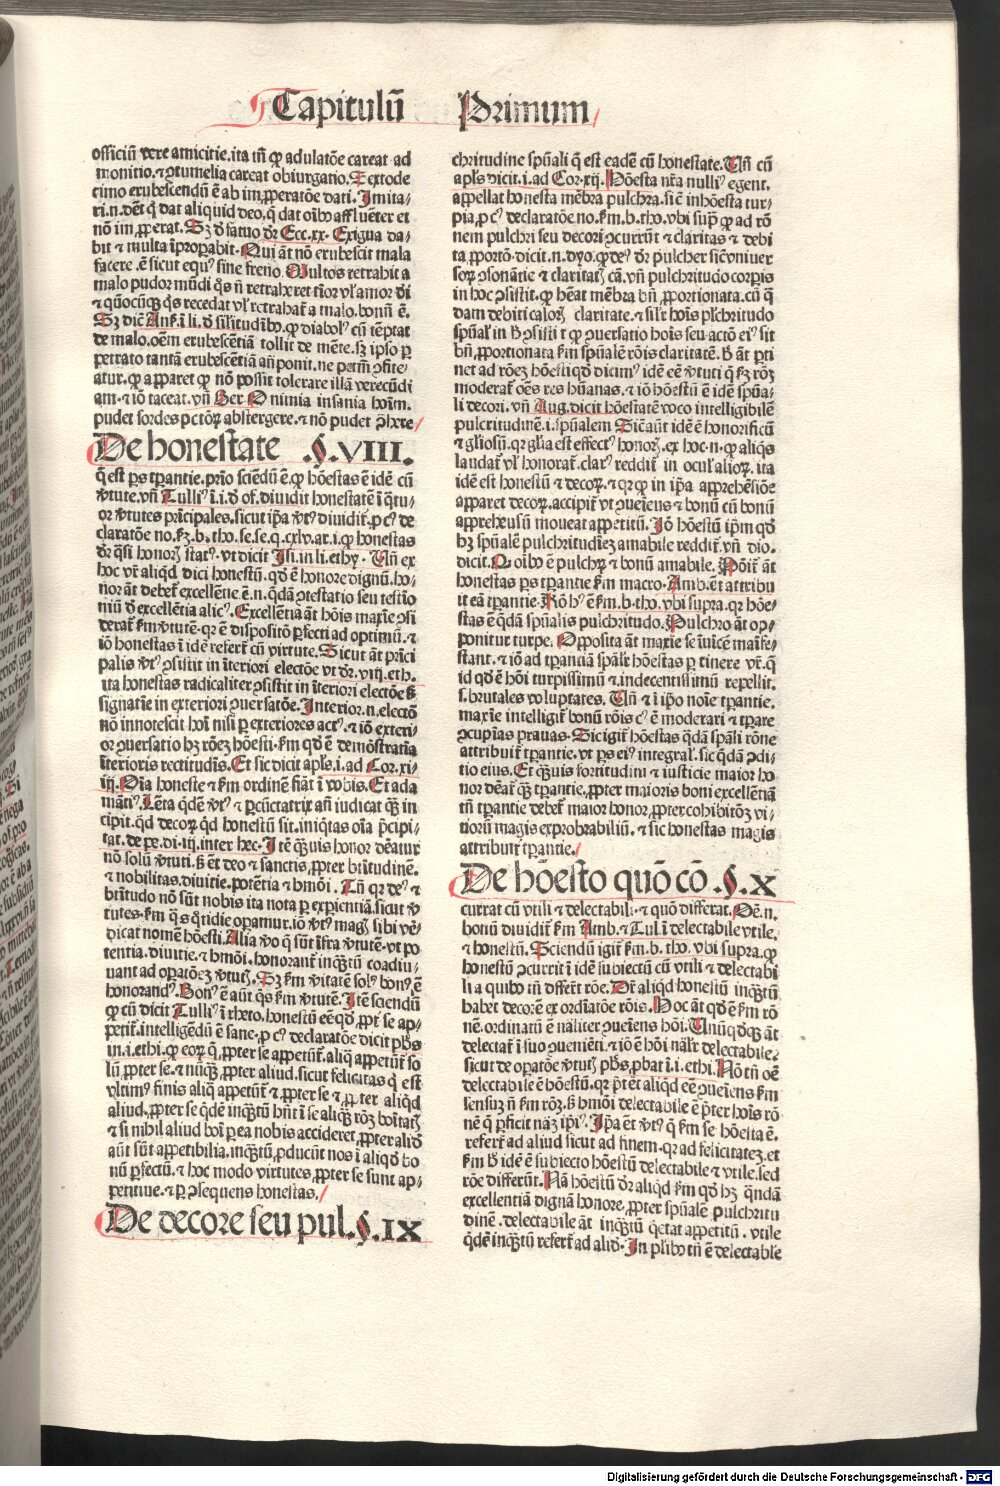 Capitulū Primum
officiū vere amicitie.ita tñ ꝙ adulatōe careat ad
monitio.⁊ ꝯtumelia careat obiurgatio.Extode
cimo erubescendū ē ab im ꝓperatōe dati. Imita-
ri.n.dēt q̄ dat aliquid deo.q̄ dat oībꝰ affluēter et
nō im ꝓperat. Sꝫ ō fatuo dr̄ Ecc.xx. Exigua da-
bit ⁊ multa īproparabit. Qui āt nō erubescit mala
facere.ē sicut equꝰ sine freno. Multos retrahit a
malo pudor mūdi qs n̄ retrahꝫret tior vl amor di
⁊ qn̄ocūqꝫ qs recedat vl retrahat a malo.bonū ē.
Sꝫ dic̄ Ans̄.ī li.ō silitudībꝰ.ꝙ diabolꝰ cū tēptat
de malo.oēm erubescētiā tollit de mēte.sꝫ ipso ꝑ
petrato tantā erubescētiā añponit.ne petm̄ ꝯfite
atur.ꝙ apparet ꝙ nō possit tolerare illā verecūdi
am.⁊ iō taceat.vn̄ Ber. O nimia insania hoīm.
pudet sordes pctōꝝ abstergere.⁊ nō pudet ꝯthere
De honestate §.VIII.
q̄ est ps tꝑantie.prīo sciēdū ē.ꝙ hōestas ē idē cū
v̄tute.vn̄ Tulliꝰ ī.i.ō of.diuidit honestatē ī qtu-
or v̄tutes prīcipales.sicut ipa v̄tꝰ diuidit.ꝑ cꝰ de
claratōe no.s̄ꝫ.b.tho.se.se.q.cxlv.ar.i.ꝙ honestas
dr̄ q̄si honorꝫ statꝰ.vt dicit Isi.in.li.ethy. Un̄ ex
hoc vr̄ aliqd dici honestū.qd ē honore dignū.ho-
nor āt debet excellētie.ē.n.qdā ꝯtestatio seu testīo
niū ō excellētia alicꝰ. Excellētia āt hōis maxīe ꝯsi
derat s̄m v̄tutē.qr ē dispositō pfecti ad optimū.⁊
iō honestas ī idē refert cū virtute. Sicut āt prīci
palis v̄tꝰ ꝯsistit in īteriori electōe vt dr̄.viij.eth.
ita honestas radicaliter ꝯsistit in īteriori electōe s̄ꝫ
signatie in exteriori ꝯuersatōe. Interior.n.electō
nō innotescit hoī nisi ꝑ exteriores actꝰ.⁊ iō exteri-
or ꝯuersatio hꝫ rōeꝫ hōesti.s̄m qd ē demōstratīa
īterioris rectitudīs. Et sic dicit apls.i.ad Cor.xi-
iij. Oīa honeste ⁊ s̄m ordinē fiāt ī vobis. Et ada
mātꝰ. Lēta qdē v̄tꝰ ⁊ ꝑcūctatrix.an̄ iudicat qꝫ in
cipit.qd decoꝝ qd honestū sit.iniqtas oīa p̄cipi-
tat.de pe.di.iij.inter hec. Itē quis honor dēatur
nō solū v̄tuti.s̄ et deo ⁊ sanctis ꝓpter btitudinē.
⁊ nobilitas.diuitie.potētia ⁊ hmōi. Tn̄ qr deꝰ ⁊
btitudo nō sūt nobis ita nota ꝑ exꝑientiā.sicut v̄
tutes.s̄m q̄ s qtidie oꝑamur.iō v̄tꝰ magꝫ sibi vē-
dicat nomē hōesti. Alia vō q̄ sūt īfra v̄tutē.vt po
tentia.diuitie.⁊ hmōi.honorant inqꝫtū coadiu-
uant ad oꝑatōeꝫ v̄tutꝫ. Sꝫ s̄m v̄itatē solꝰ bonꝰ ē
honorandꝰ. Bonꝰ ē aūt qs s̄m v̄tutē. Itē sciendū
ꝙ cū dicit Tulliꝰ ī rheto.honestū eē qd ꝓpt se ap-
petit.intelligēdū ē sane.ꝑ cꝰ declaratōe dicit phs
in.i.ethi.ꝙ eoꝝ q̄ ꝓpter se appetūt.aliq appetūt so
lū ꝓpter se.⁊ nūqꝫ ꝓpter aliud.sicut felicitas q̄ est
vltimꝰ finis aliq appetūt ⁊ ꝓpter se ⁊ ꝓpter aliqd
aliud.ꝓpter se qdē inqꝫtū hn̄t ī se aliquā rōꝫ boītatꝫ
⁊ si nihil aliud boī ꝑ ea nobis accideret.ꝓpter aliō
aūt sūt appetibilia.inqꝫtū ꝓducūt nos ī aliqd bo
nū ꝑfectū.⁊ hoc modo virtutes ꝓpter se sunt ap-
petitiue.⁊ ꝑ ꝯsequens honestas.
De decore seu pul.§.IX
chritudine spūali q̄ est eadē cū honestate. Un̄ cū
apls dicit.i.ad Cor.xij. Hōesta nr̄a nulliꝰ egent.
appellat honesta mēbra pulchra.sic̄ inhōesta tur-
pia.ꝑ cꝰ declaratōe no.s̄m.b.tho.vbi supͣ ꝙ ad rō
nem pulchri seu decori ꝯcurrūt ⁊ claritas ⁊ debi
ta ꝓportō.dicit.n.dyo.ꝙ deꝰ dr̄ pulcher sicͮ vniuer
soꝝ ꝯsonātie ⁊ claritatꝫ cā.vn̄ pulchritudo corpis
in hoc ꝯsistit.ꝙ hēat mēbra bn̄ ꝓportionata.cū q̄
dam debiti colorꝫ claritate.⁊ silr hoīs plchritudo
spūal in h̄ ꝯsistit ꝙ ꝯuersatio hoīs seu actō eiꝰ sit
bn̄ ꝓportionata s̄m spūalē rōis claritatē. h̄ āt ꝑti
net ad rōeꝫ hōesti qd diximꝰ idē eē v̄tuti q̄ s̄ꝫ rōꝫ
moderat oēs res hūanas.⁊ iō hōestū ē idē spūa-
li decori.vn̄ Aug.dicit hōestatē voco intelligibilē
pulcritudinē.i.spūalem Sic aūt idē ē honorificū
⁊ gl̄iosū.qr glia est effectꝰ honorꝫ.ex hoc.n.ꝙ aliqs
laudat vl honorat.clarꝰ reddit in oculꝭ alioꝝ.ita
idē est honestū ⁊ decoꝝ.⁊ qr ꝙ in ip̄a apprehēsiōe
apparet decoꝝ.accipit vt ꝯueiens ⁊ bonū cū bonū
apprehensū moueat appetitū. Iō hōestū ip̄m qd
hꝫ spūalē pulchritudieꝫ amabile reddit.vn̄ dio.
dicit. Q oībꝰ ē pulchꝝ ⁊ bonū amabile. Poīt āt
honestas ꝑs tꝑantie s̄m macro. Amb.ēt attribu
it eā tꝑantie. Rō hꝰ ē s̄m.b.tho.vbi supra.qr hōe-
stas ē qdā spūalis pulchritudo. Pulchro āt op-
ponitur turpe. Opposita āt maxīe se īuicē maīfe-
stant.⁊ iō ad tꝑanciā spālr hōestas ꝑtinere vr̄.q̄
id qd ē hōi turpissimū ⁊ indecentissimū repellit.
s.brutales voluptates. Un̄ ⁊ ī ip̄o noīe tꝑantie.
maxīe intelligit bonū rōis cꝰ ē moderari ⁊ tꝑare
ꝯcupīas prauas. Sic igit hōestas qdā spāli rōne
attribuit tꝑantie.vt ps eiꝰ integral.sic qdā ꝯdi-
tio eius. Et quis fortitudini ⁊ iusticie maior ho
nor dēat qꝫ tꝑantie.ꝓpter maioris boni excellētiā
tn̄ tꝑantie debet maior honor.ꝓpter cohibitōꝫ vi-
tiorū magis exprobrabiliū.⁊ sic honestas magis
attribuit tꝑantie.
De hōesto quō cō.§.X
currat cū vtili ⁊ delectabili.⁊ quō differat. Oē.n.
bonū diuidit s̄m Amb.⁊ Tul.ī delectabile vtile.
⁊ honestū. Sciendū igit s̄m.b.tho.vbi supra.ꝙ
honestū ꝯcurrit ī idē subiectū cū vtili ⁊ delectabi
li a quibꝰ tn̄ differt rōe. Dr̄ aliqd honestū inqꝫtū
habet decorē ex ordīatōe rōis. Hoc āt qd ē s̄m rō
nē.ordinatū ē naliter ꝯueīens hōi. Unūqdqꝫ āt
delectat ī suo ꝯuenīēti.⁊ iō ē hōi nalr delectabile.
sicut de oꝑatōe v̄tutꝫ phs ꝓbat ī.i.ethi. Nō tn̄ oē
delectabile ē hōestū.qr pōt et aliqd eē ꝯueīens s̄m
sensuꝫ n̄ s̄m rōꝫ.s̄ hmōi delectabile ē p̄ter hōis rō
nē q̄ ꝑficit nāꝫ ip̄iꝰ. Ip̄a ēt v̄tꝰ q̄ s̄m se hōesta ē.
refert ad aliud sicut ad finem.qr ad felicitateꝫ.et
s̄m h̄ idē ē subiecto hōestū delectabile ⁊ vtile.sed
rōe differūt. Nā hōestū dr̄ aliqd s̄m qd hꝫ qndā
excellentiā dignā honore.ꝓpter spūalē pulchritu
dinē.delectabile āt inqꝫtū qetat appetitū.vtile
qdē inqꝫtū refert ad aliō. In plibꝰ tn̄ ē delectable
Digitalisierung gefördert durch die Deutsche Forschungsgemeinschaft - DFG